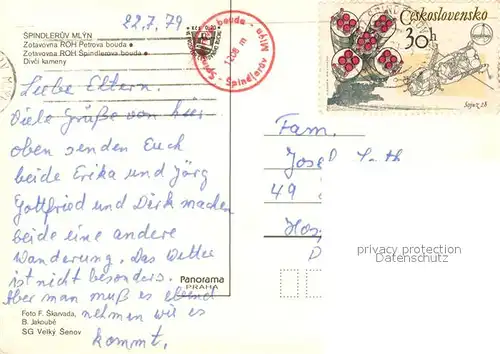 22.7.79
ŠPINDLERŮV MLÝN
Zotavovna ROH Petrova bouda ●
Zotavovna ROH Špindlerova bouda ●
Dívčí kameny
bouda - Špindlerův Mlýn
1208 m
Československo
30h
Sojuz 28
Liebe Eltern.
Viele Grüße von hier
oben senden Euch
beide Erika und Jörg
Gottfried und Dirk machen
beide eine andere
Wanderung. Das Wetter
ist nicht besonders.
Aber man muß es ebend
nehmen wie es
kommt.
Fam.
Josef
49
privacy protection
Datenschutz
Panorama
PRAHA
Foto F. Škarvada,
B. Jakoubě
SG Velký Šenov